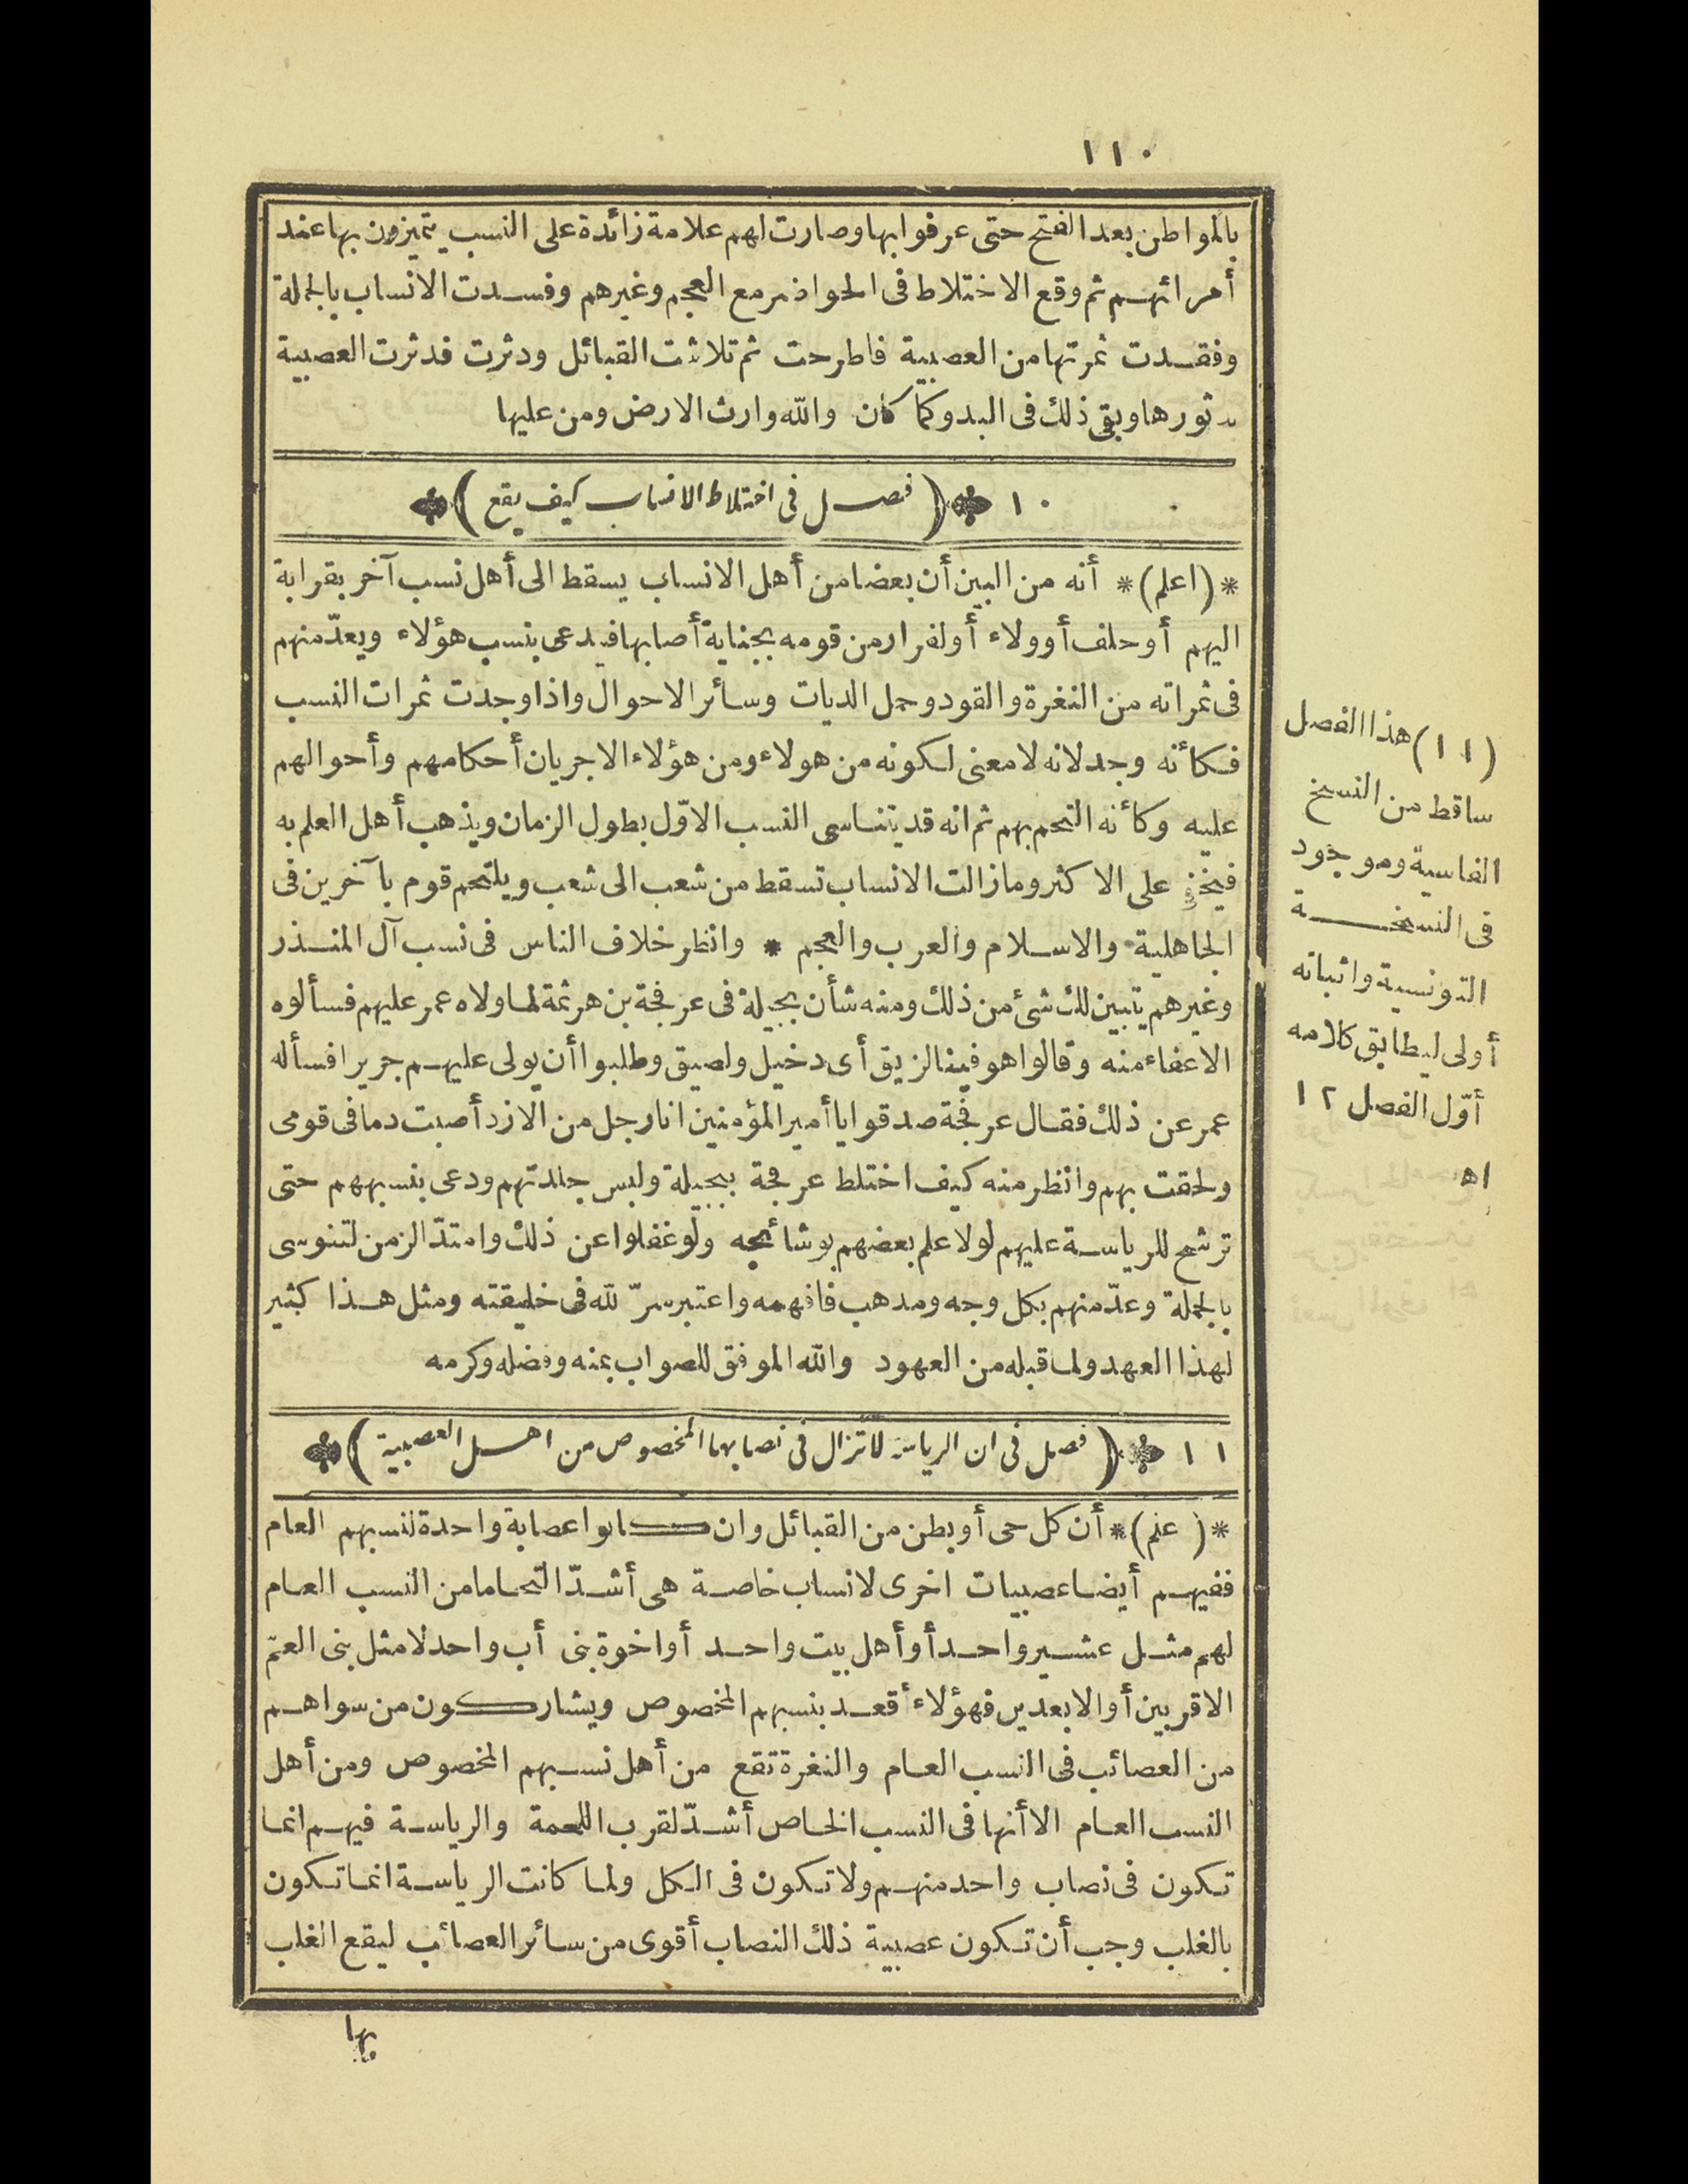 ١١٠
بالمواطن بعد الفتح حتى عرفوا بها وصارت لهم علامة زائدة على النسب يتميزون بها عند
أمرائهم ثم وقع الاختلاط فى الحواضر مع العجم وغيرهم وفسدت الانساب بالجملة
وفقدت ثمرتها من العصبية فاطرحت ثم تلاشت القبائل ودثرت فدثرت العصبية
بدثورها وبقى ذلك فى البدو كما كان والله وارث الارض ومن عليها
١٠ (فصل فى اختلاط الانساب كيف يقع)
*(اعلم)* أنه من البين أن بعضا من أهل الانساب يسقط الى أهل نسب آخر بقرابة
اليهم أو حلف أو ولاء أو لفرار من قومه بجناية أصابها فيدعى بنسب هؤلاء ويعدّ منهم
فى ثمراته من النغرة والقود وحمل الديات وسائر الاحوال واذا وجدت ثمرات النسب
فكأنه وجد لانه لا معنى لكونه من هولاء ومن هؤلاء الا جريان أحكامهم وأحوالهم
عليه وكأنه التحم بهم ثم انه قد يتناسى النسب الاوّل بطول الزمان ويذهب أهل العلم به
فيخفى على الاكثر وما زالت الانساب تسقط من شعب الى شعب ويلتحم قوم بآخرين فى
الجاهلية والاسلام والعرب والعجم * وانظر خلاف الناس فى نسب آل المنذر
وغيرهم يتبين لك شئ من ذلك ومنه شأن بجيلة فى عرفجة بن هرثمة لما ولاه عمر عليهم فسألوه
الاعفاء منه وقالوا هو فينا لزيق أى دخيل ولصيق وطلبوا أن يولى عليهم جريرا فسأله
عمر عن ذلك فقال عرفجة صدقوا يا أمير المؤمنين انا رجل من الازد أصبت دما فى قومى
ولحقت بهم وانظر منه كيف اختلط عرفجة ببجيلة ولبس جلدتهم ودعى بنسبهم حتى
ترشح للرياسة عليهم لولا علم بعضهم بوشائجه ولو غفلوا عن ذلك وامتدّ الزمن لتنوسى
بالجملة وعدّ منهم بكل وجه ومذهب فافهمه واعتبر سرّ الله فى خليقته ومثل هذا كثير
لهذا العهد ولما قبله من العهود والله الموفق للصواب بمنه وفضله وكرمه
١١ (فصل فى ان الرياسة لا تزال فى نصابها المخصوص من اهل العصبية)
*(علم)* أن كل حى أو بطن من القبائل وان كانوا عصابة واحدة لنسبهم العام
ففيهم أيضا عصبيات اخرى لانساب خاصة هى أشدّ التحاما من النسب العام
لهم مثل عشير واحد أو أهل بيت واحد أو اخوة بنى أب واحد لا مثل بنى العمّ
الاقربين أو الابعدين فهؤلاء أقعد بنسبهم المخصوص ويشاركون من سواهم
من العصائب فى النسب العام والنغرة تقع من أهل نسبهم المخصوص ومن أهل
النسب العام الا أنها فى النسب الخاص أشدّ لقرب اللحمة والرياسة فيهم انما
تكون فى نصاب واحد منهم ولا تكون فى الكل ولما كانت الرياسة انما تكون
بالغلب وجب أن تكون عصبية ذلك النصاب أقوى من سائر العصائب ليقع الغلب
بها
(١١) هذا الفصل
ساقط من النسخ
الفاسية وموجود
فى النسخة
التونسية واثباته
أولى ليطابق كلامه
أوّل الفصل ١٢
اه